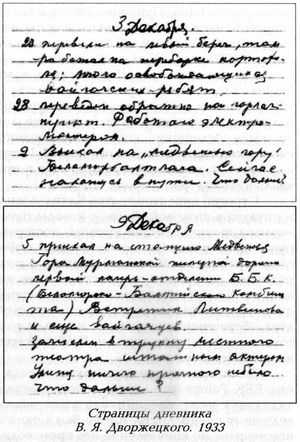 3 Декабря.
20 перевели на левый берег, там
работал на переборке картофе-
ля; много освобождающихся
вайгачских ребят.
28 перевели обратно на
пункт. Работаю электро-
монтером.
9 Выехал на „медвежью гору“
Белморбалтлага. Сейчас
нахожусь в пути. Что дальше?
9 Декабря
5 приехал на станцию Медвежья
Гора Мурманской железной дороги
первый лагерь-отделение Б.Б.К.
(Беломорско-Балтийский Комбина
та) Встретил Литвинова
и еще вайгачцев.
зачислен в труппу местного
театра штатным актером
ничего приятного небыло
что дальше?
Страницы дневника
В. Я. Дворжецкого. 1933